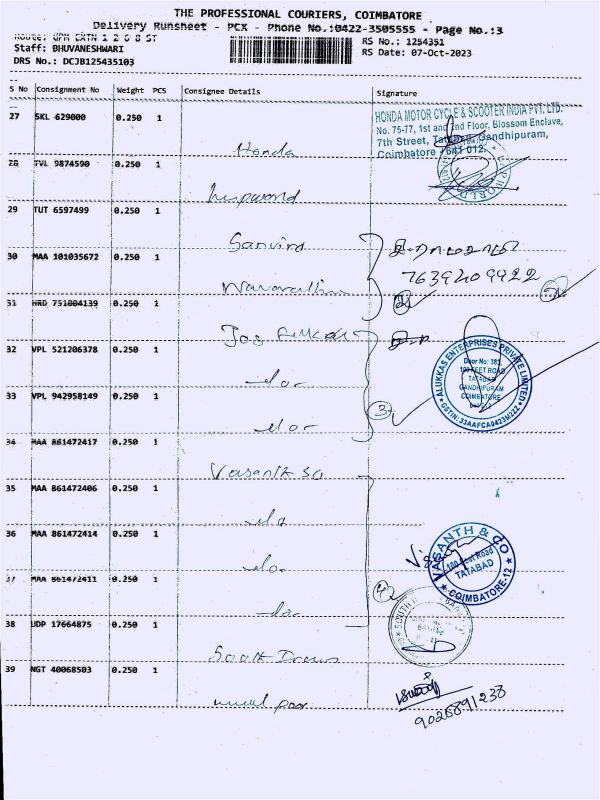 THE PROFESSIONAL COURIERS, COIMBATORE
Delivery Runsheet - PCX - Phone No.:0422-3505555 - Page No.:3
Route: UPM EXTN 1 2 6 8 ST
RS No.: 1254351
Staff: BHUVANESHWARI
RS Date: 07-Oct-2023
DRS No.: DCJB125435103
S No Consignment No Weight PCS Consignee Details Signature
27 SKL 629000 0.250 1
HONDA MOTOR CYCLE & SCOOTER INDIA PVT. LTD.
No. 75-77, 1st and 2nd Floor, Blossom Enclave,
7th Street, Tatabad, Gandhipuram,
Coimbatore - 641 012.
Honda
28 TVL 9874590 0.250 1
29 TUT 6597499 0.250 1
30 MAA 101035672 0.250 1
7639209922
31 HRD 751004139 0.250 1
2
32 VPL 521206378 0.250 1
-do-
ALUKKAS ENTERPRISES PRIVATE LIMITED
Door No: 383
100 FEET ROAD
TATABAD
GANDHIPURAM
COIMBATORE
GSTIN:33AAFCA0423M2ZZ
33 VPL 942958149 0.250 1
-do-
3
34 MAA 861472417 0.250 1
Vasanth &o
35 MAA 861472406 0.250 1
-do
36 MAA 861472414 0.250 1
-do-
VASANTH & CO
100 Feet Road
TATABAD
COIMBATORE-12
37 MAA 861472411 0.250 1
-do-
4
38 UDP 17664875 0.250 1
SOUTH
39 NGT 40068503 0.250 1
9026891238